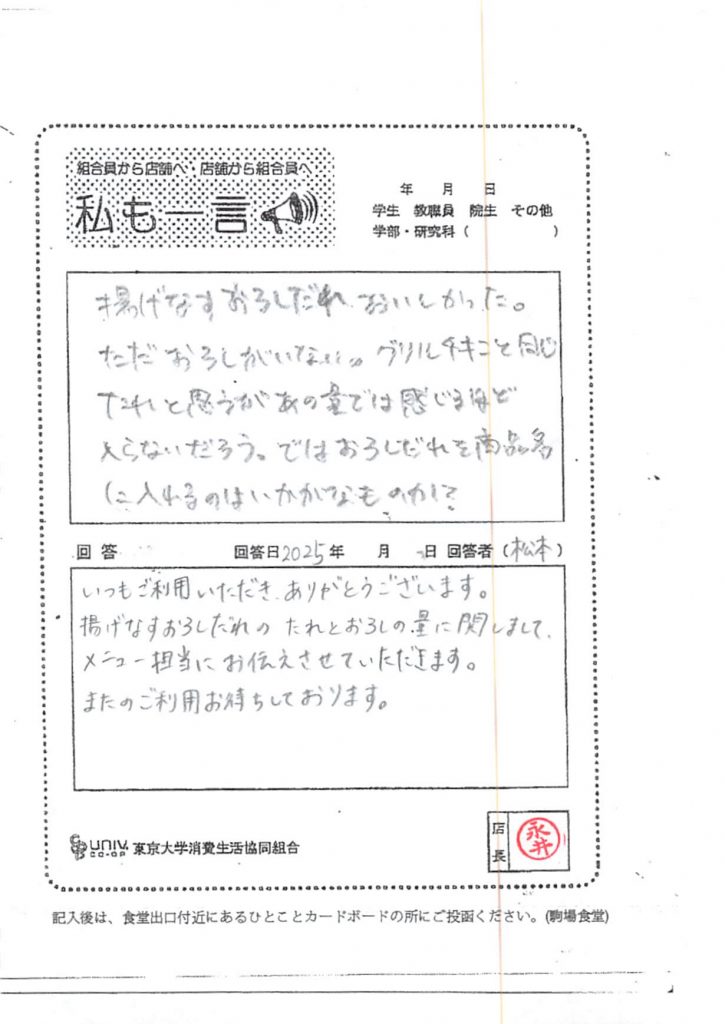 組合員から店舗へ・店舗から組合員へ
私も一言
年 月 日
学生 教職員 院生 その他
学部・研究科（ ）
揚げなすおろしだれ おいしかった。
ただおろしがいない。グリルチキンと同じ
たれと思うがあの量では感じるほど
入らないだろう。ではおろしだれを商品名
に入れるのはいかがなものか？
回答 回答日2025年 月 日 回答者（松本）
いつもご利用いただき、ありがとうございます。
揚げなすおろしだれの たれとおろしの量に関しまして、
メニュー担当にお伝えさせていただきます。
またのご利用お待ちしております。
UNIV. CO-OP 東京大学消費生活協同組合
店長 永井
記入後は、食堂出口付近にあるひとことカードボードの所にご投函ください。(駒場食堂)